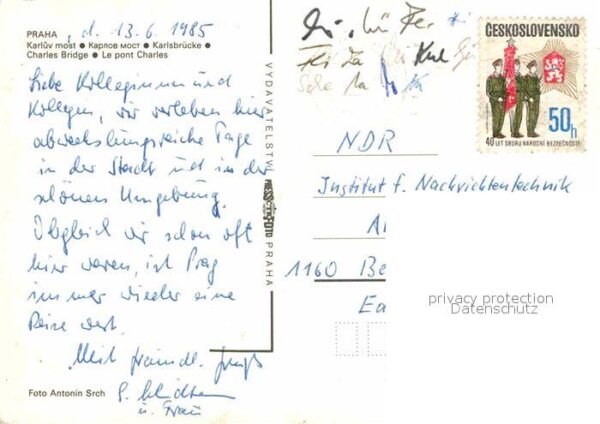 PRAHA , d. 13.6.1985
Karlův most • Карлов мост • Karlsbrücke •
Charles Bridge • Le pont Charles
Liebe Kolleginnen und
Kollegen, wir verleben hier
abwechslungsreiche Tage
in der Stadt und in der
schönen Umgebung.
Obgleich wir schon oft
hier waren, ist Prag
immer wieder eine
Reise wert.
Mit freundl. Gruß
u. Frau
Foto Antonín Srch
VYDAVATELSTVÍ
PRESSFOTO
PRAHA
ČESKOSLOVENSKO
50h
40 LET SBORU NÁRODNÍ BEZPEČNOSTI
NDR
Institut f. Nachrichtentechnik
1160 Be
privacy protection
Datenschutz